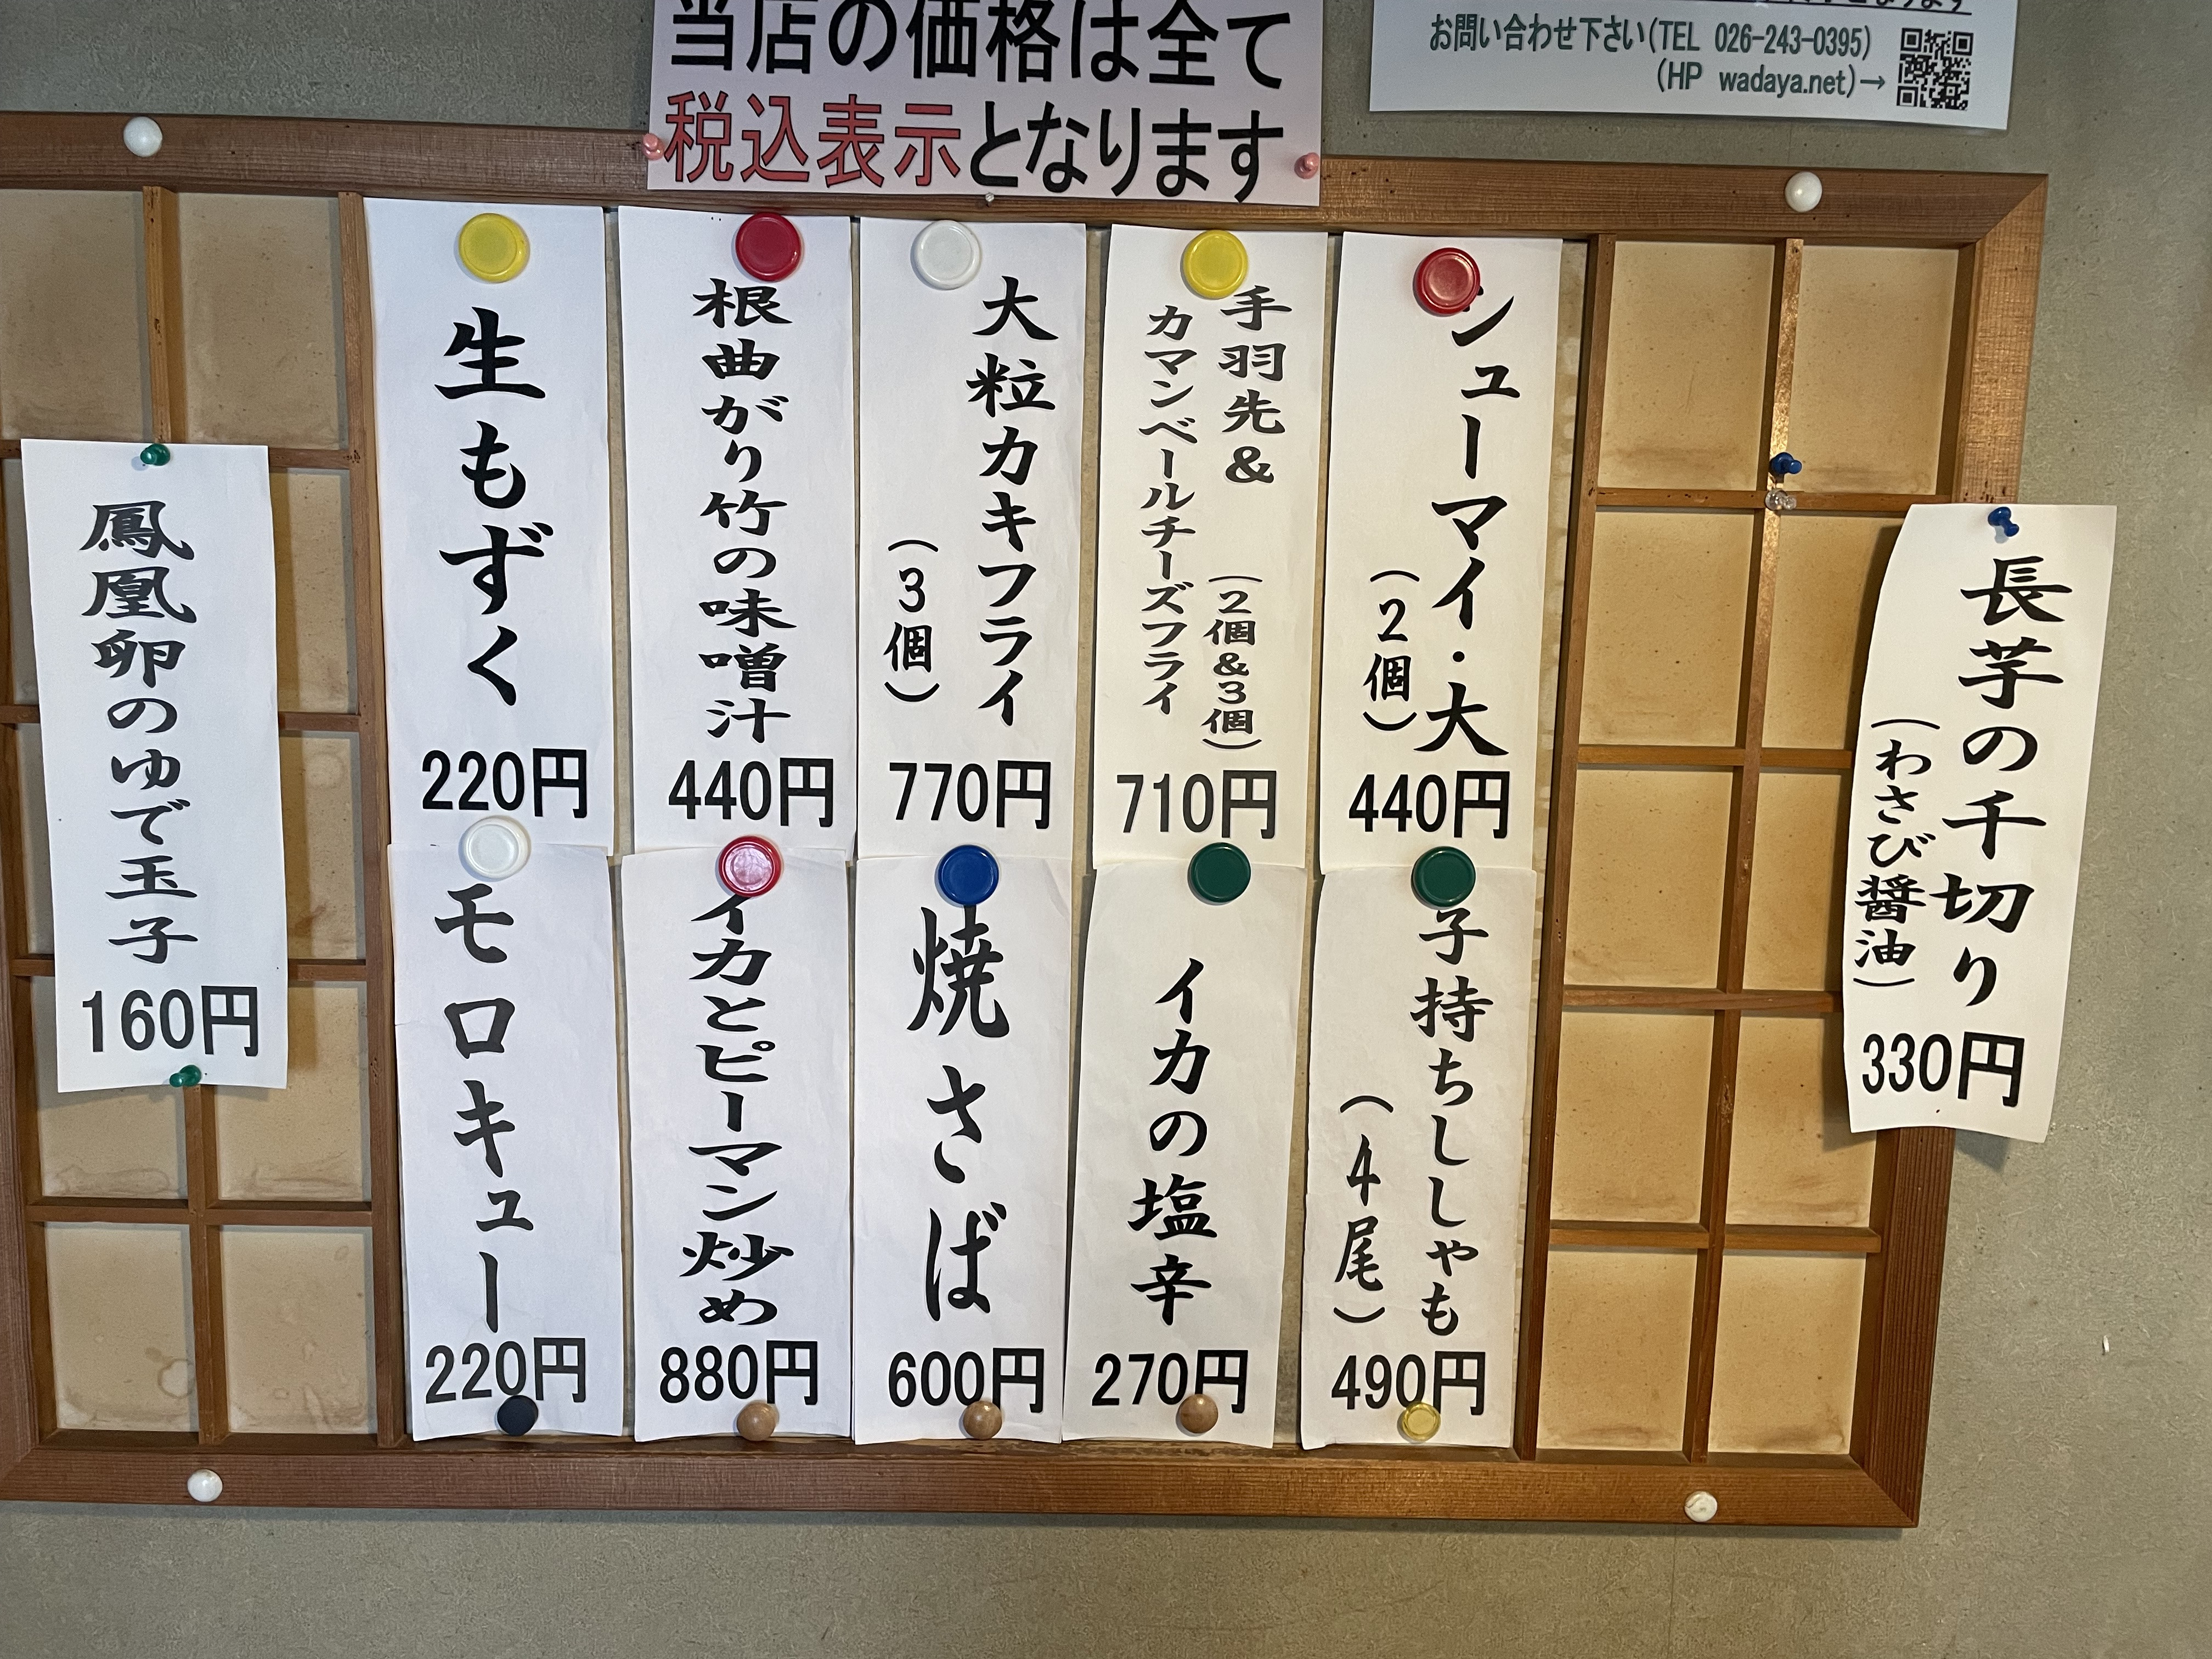 当店の価格は全て
税込表示となります
お問い合わせ下さい(TEL 026-243-0395)
(HP wadaya.net)→
長芋の千切り
(わさび醤油)
330円
シューマイ・大
(2個)
440円
手羽先& (2個&3個)
カマンベールチーズフライ
710円
大粒カキフライ
(3個)
770円
根曲がり竹の味噌汁
440円
生もずく
220円
子持ちししゃも
(4尾)
490円
イカの塩辛
270円
焼さば
600円
イカとピーマン炒め
880円
モロキュー
220円
鳳凰卵のゆで玉子
160円